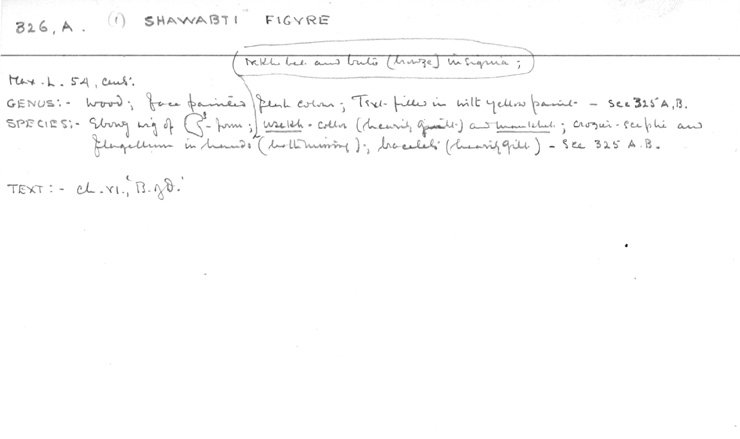 326, A. (1) SHAWABTI FIGVRE
Nekhbet and buto (bronze) insignia;
Max. L. 54, cent:
GENUS:- wood; face painted flesh colour; Text filled in with yellow paint - see 325 A, B.
SPECIES:- Ebony wig of form; usekh - collar (heavily gilt) and mankhet; crozier-sceptre and
flagellum in hands (both missing); bracelets (heavily gilt) - see 325 A. B.
TEXT:- ch. VI., 'B. of D.'